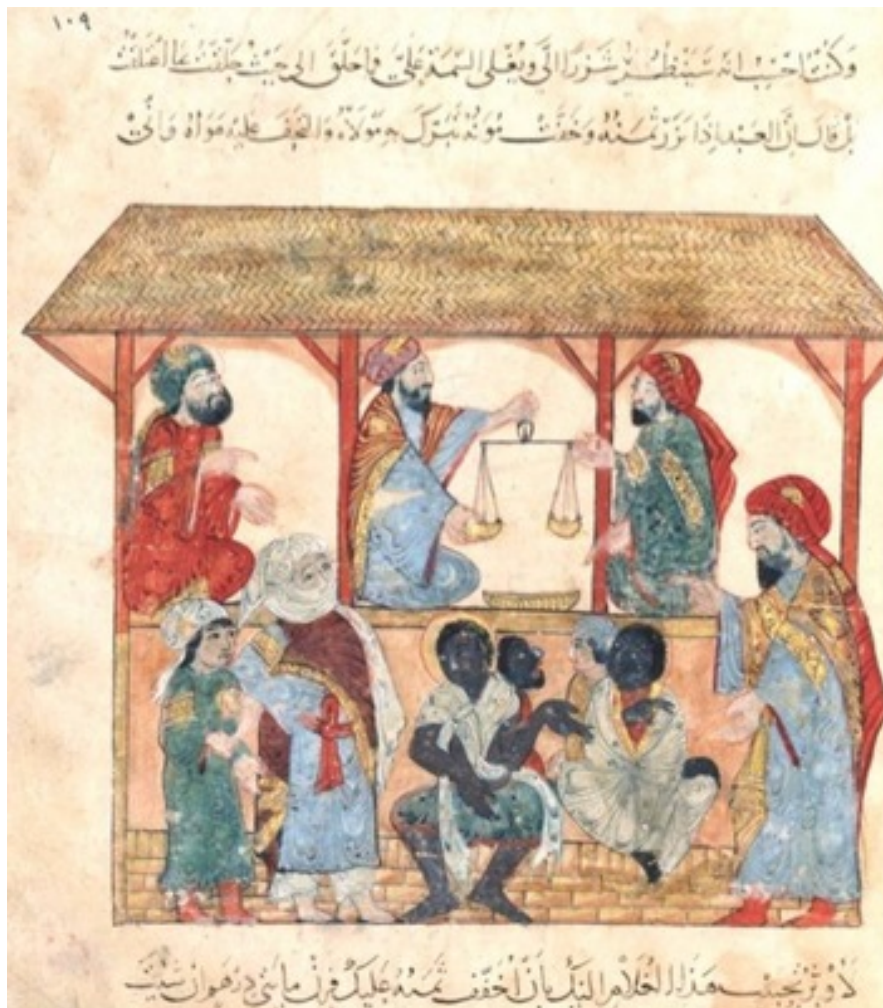 ١٠٩
وكنت احسب انه سينظر شزرا الى ويغلى السيمة على فما حلق الى حيث حلقت
بل قال ان العبد اذا نزر ثمنه وخفت مونه تبرك به مولاه والتحف عليه هواه وانى
لاوثر تحبيب هذا الغلام اليك بان اخفف ثمنه عليك فزن مايتى درهم ان شيت